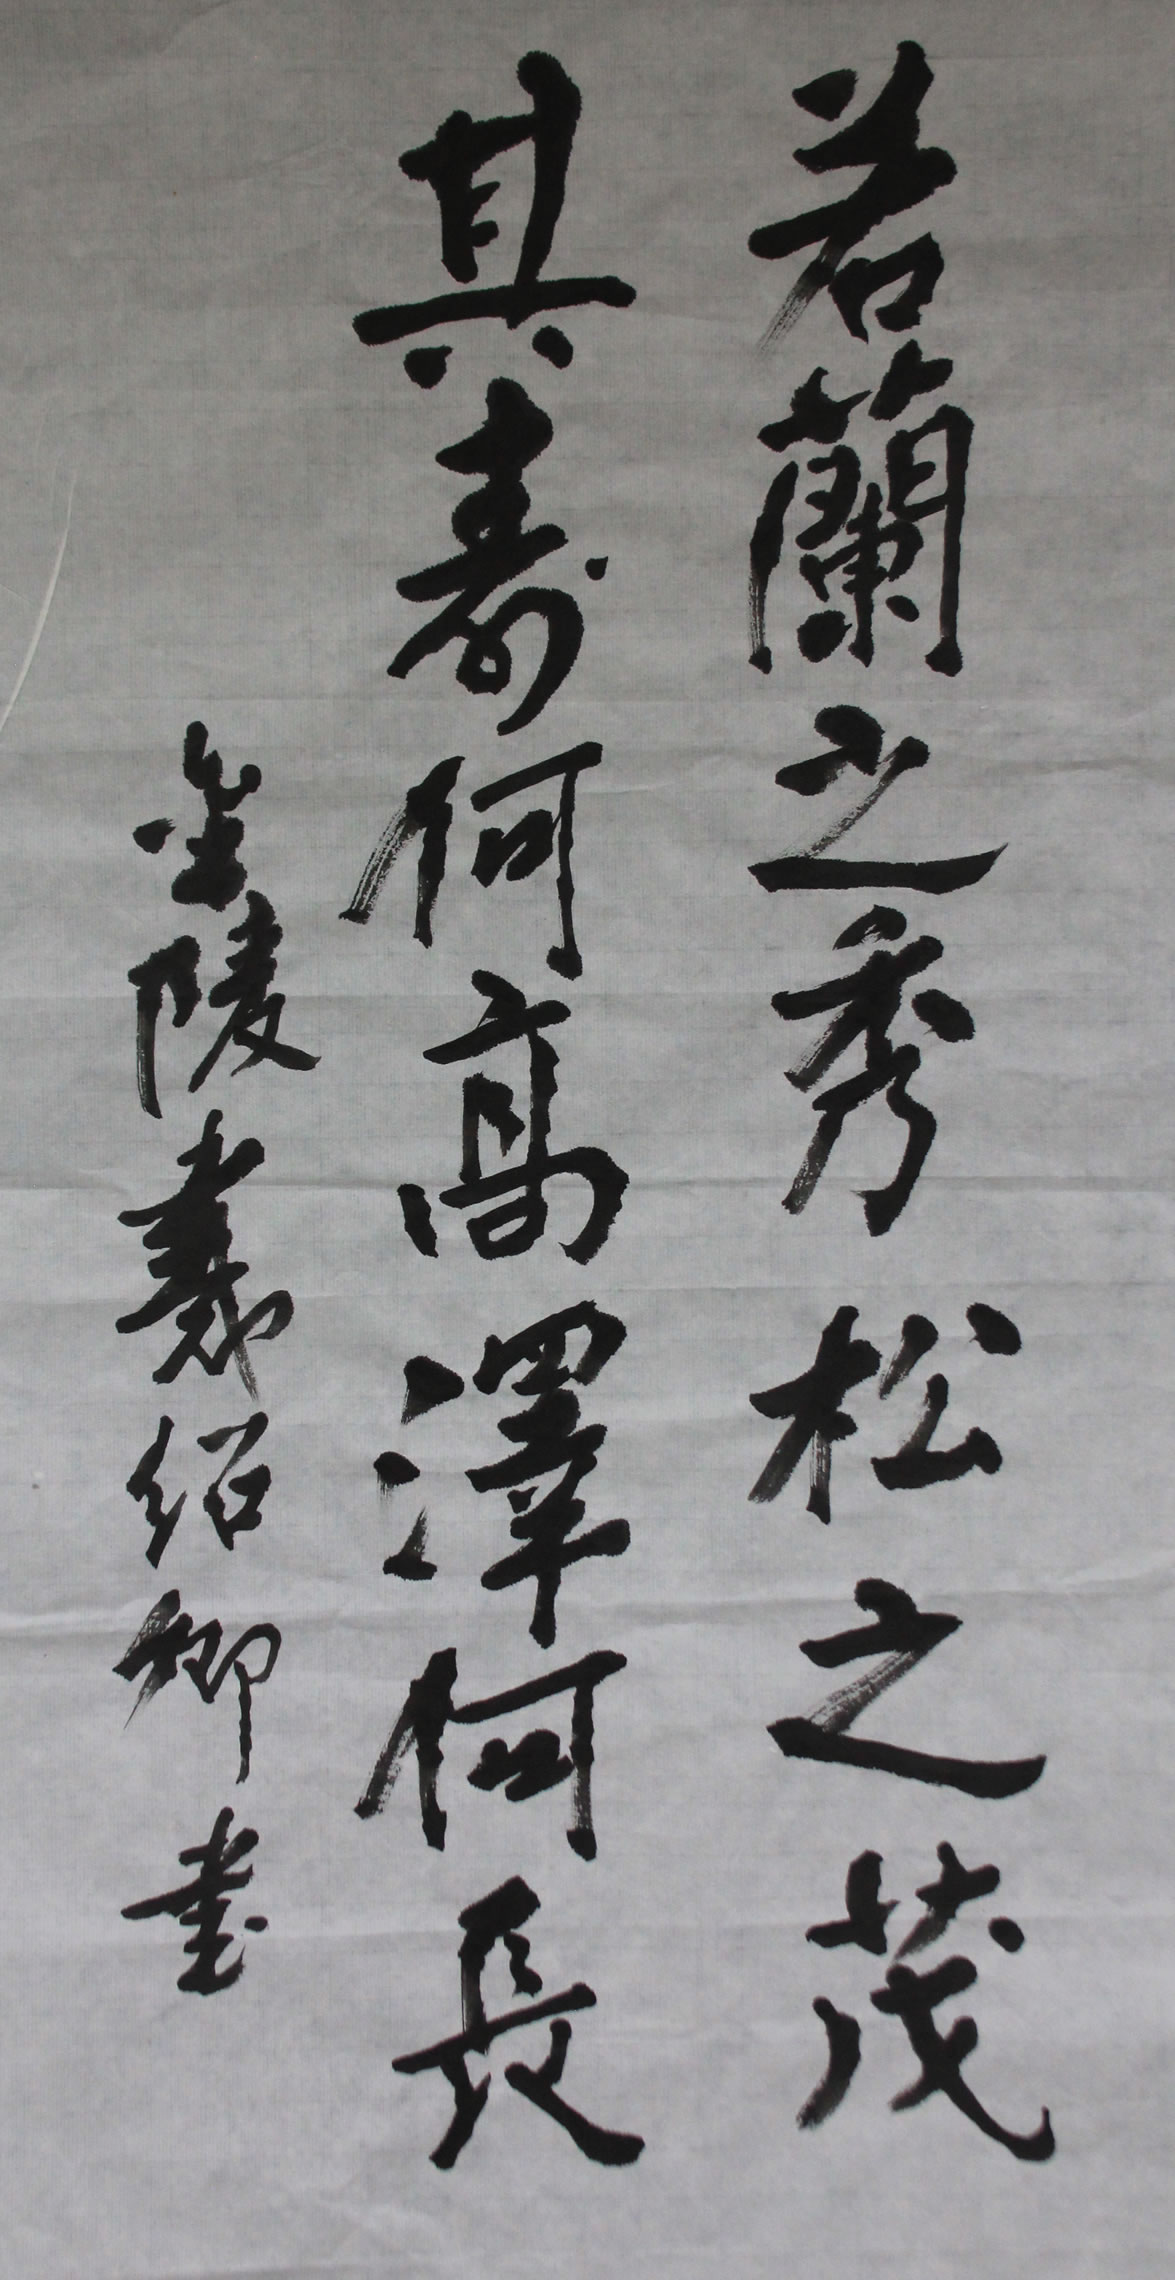 若蘭之秀松之茂
其壽何高澤何長
金陵義紹卿書